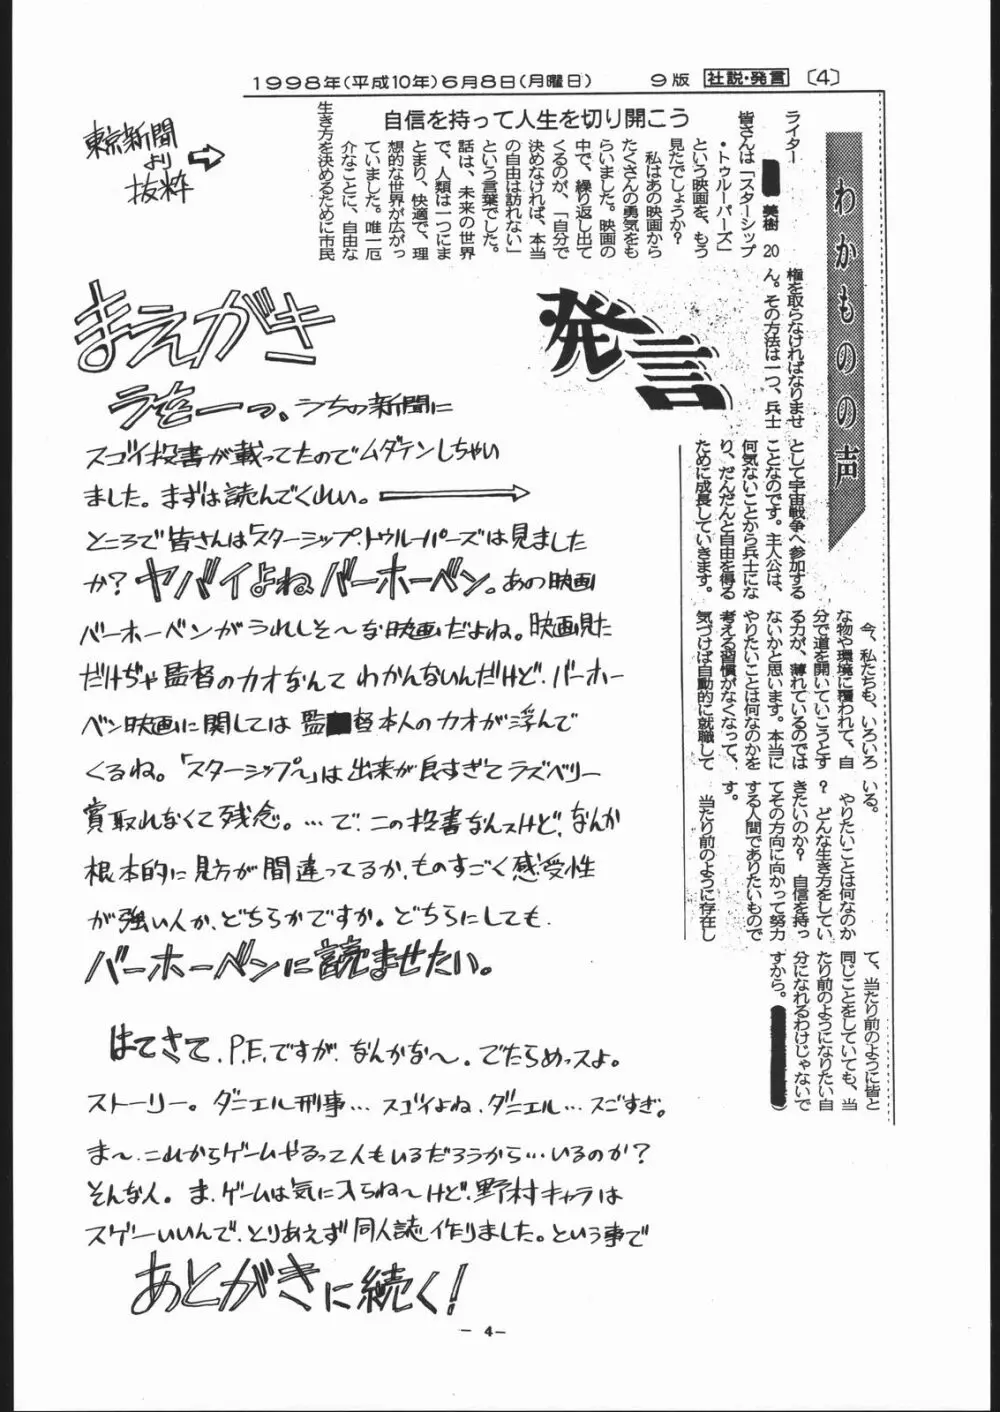 1998年(平成10年)6月8日(月曜日) 9版 社説・発言 〔4〕
東京新聞
より
抜粋
わかものの声
発言
自信を持って人生を切り開こう
ライター
美樹 20
皆さんは「スターシップ
・トゥルーパーズ」
という映画を、もう
見たでしょうか?
私はあの映画から
たくさんの勇気をも
らいました。映画の
中で、繰り返し出て
くるのが、「自分で
決めなければ、本当
の自由は訪れない」
という言葉でした。
話は、未来の世界
で、人類は一つにま
とまり、快適で、理
想的な世界が広がっ
ていました。唯一厄
介なことに、自由な
生き方を決めるために市民
権を取らなければなりませ
ん。その方法は一つ、兵士
として宇宙戦争へ参加する
ことなのです。主人公は、
何気ないことから兵士にな
り、だんだんと自由を得る
ために成長していきます。
今、私たちも、いろいろ
な物や環境に覆われて、自
分で道を開いていこうとす
る力が、薄れているのでは
ないかと思います。本当に
やりたいことは何なのかを
考える習慣がなくなって、
気づけば自動的に就職して
いる。
やりたいことは何なのか
? どんな生き方をしてい
きたいのか? 自信を持っ
てその方向に向かって努力
する人間でありたいもので
す。
当たり前のように存在し
て、当たり前のように皆と
同じことをしていても、当
たり前のようになりたい自
分になれるわけじゃないで
すから。
まえがき
うを一っ、うちの新聞に
スゴイ投書が載ってたのでムダテンしちゃい
ました。まずは読んでくれい。
ところで皆さんは「スターシップ・トゥルーパーズ」は見ました
か?ヤバイよねバーホーベン。あの映画
バーホーベンがうれしそ〜な映画だよね。映画見た
だけぢゃ監督のカオなんてわかんないんだけど、バーホー
ベン映画に関しては監督本人のカオが浮んで
くるね。「スターシップ〜」は出来が良すぎてラズベリー
賞取れなくて残念。…で、この投書なんスけど、なんか
根本的に見方が間違ってるか、ものすごく感受性
が強い人か、どちらかですか。どちらにしても、
バーホーベンに読ませたい。
はてさて、P.E.ですが、なんかな〜。でたらめっスよ。
ストーリー。ダニエル刑事…スゴイよね、ダニエル…スごすぎ。
ま〜、これからゲームやるって人もいるだろうから…いるのか?
そんな人。ま、ゲームは気に入らね〜けど、野村キャラは
スゲーいいんで、とりあえず同人誌作りました。という事で
あとがきに続く!
- 4 -